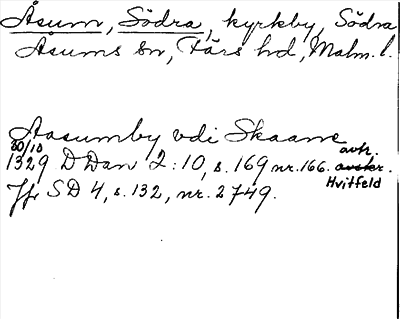 Åsum, Södra, kyrkby, Södra
Åsums sn, Färs hd, Malm. l.
Aasumby vdi Skaane
30/10 avh.
1329 D Dan 2:10, s. 169 nr. 166. avskr.
Hvitfeld
Jfr SD 4, s. 132, nr. 2749.